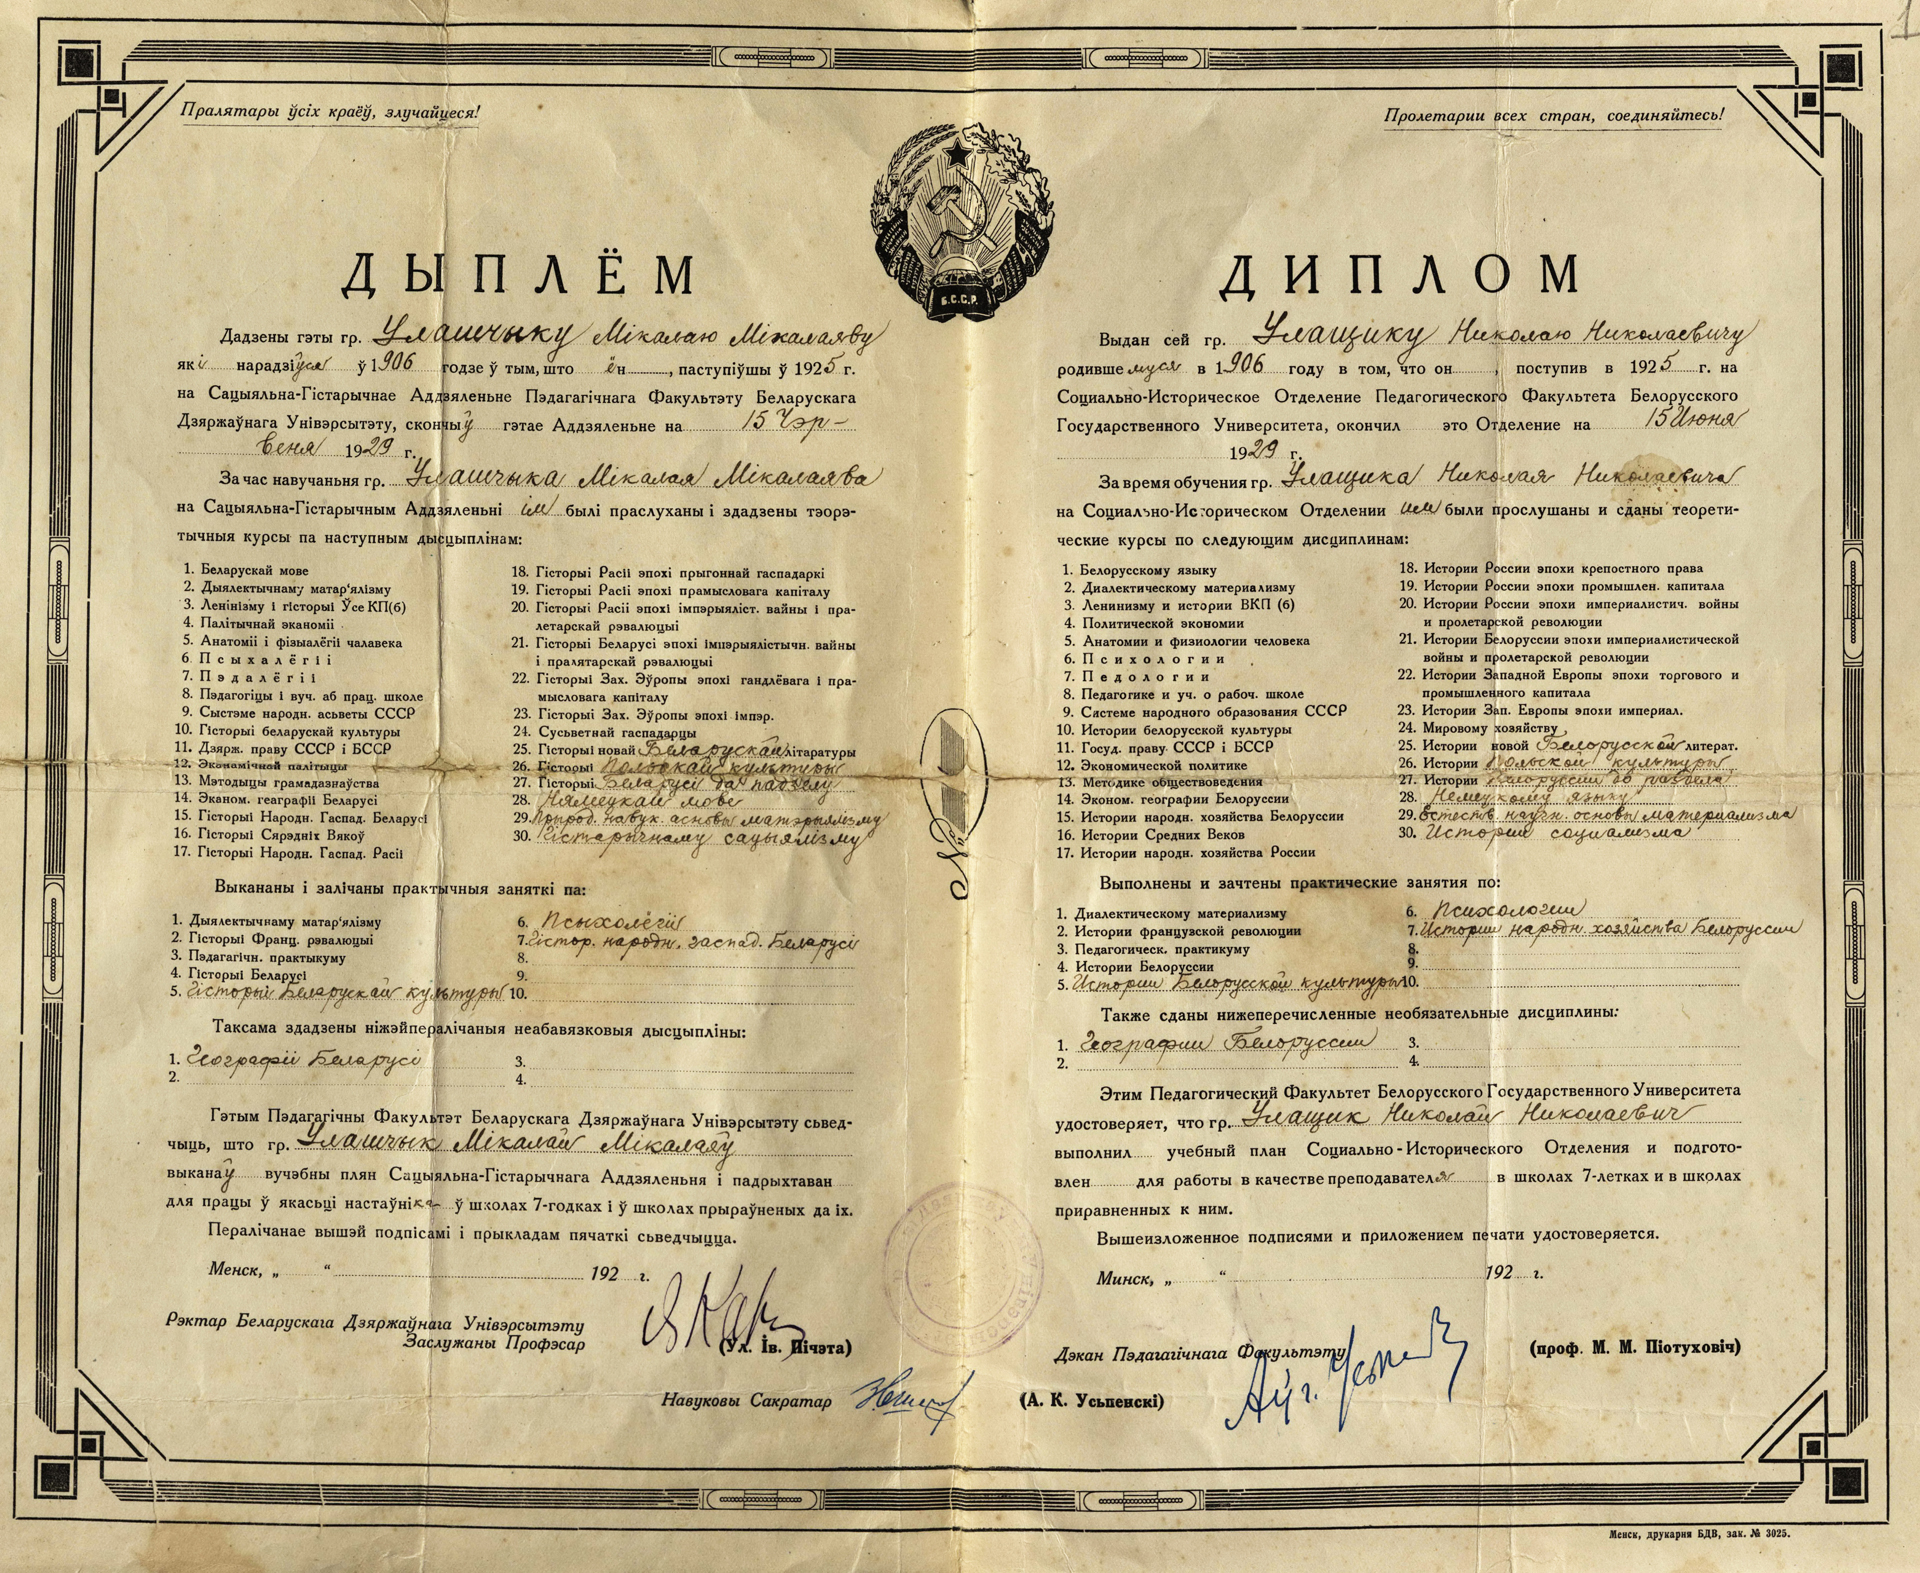 Пралятары ўсіх краёў, злучайцеся!
ДЫПЛЁМ
Дадзены гэты гр. Улашчыку Мікалаю Мікалаяву
які нарадзіўся ў 1906 годзе ў тым, што ён, паступіўшы ў 1925 г.
на Сацыяльна-Гістарычнае Аддзяленьне Пэдагагічнага Факультэту Беларускага
Дзяржаўнага Унівэрсытэту, скончыў гэтае Аддзяленьне на 15 Чэр-
веня 1929 г.
За час навучаньня гр. Улашчыка Мікалая Мікалаява
на Сацыяльна-Гістарычным Аддзяленьні ім былі праслуханы і здадзены тэорэ-
тычныя курсы па наступным дысцыплінам:
1. Беларускай мове
2. Дыялектычнаму матар'ялізму
3. Ленінізму і гісторыі Ўсе КП(б)
4. Палітычнай эканоміі
5. Анатоміі і фізыалёгіі чалавека
6. Псыхалёгіі
7. Пэдалёгіі
8. Пэдагогіцы і вуч. аб прац. школе
9. Сыстэме народн. асьветы СССР
10. Гісторыі беларускай культуры
11. Дзярж. праву СССР і БССР
12. Эканамічнай палітыцы
13. Мэтодыцы грамадазнаўства
14. Эканом. географіі Беларусі
15. Гісторыі Народн. Гаспад. Беларусі
16. Гісторыі Сярэдніх Вякоў
17. Гісторыі Народн. Гаспад. Расіі
18. Гісторыі Расіі эпохі прыгоннай гаспадаркі
19. Гісторыі Расіі эпохі прамысловага капіталу
20. Гісторыі Расіі эпохі імпэрыяліст. вайны і пра-
летарскай рэвалюцыі
21. Гісторыі Беларусі эпохі імпэрыялістычн. вайны
і пралятарскай рэвалюцыі
22. Гісторыі Зах. Эўропы эпохі гандлёвага і пра-
мысловага капіталу
23. Гісторыі Зах. Эўропы эпохі імпэр.
24. Сусьветнай гаспадарцы
25. Гісторыі новай Беларускай літаратуры
26. Гісторыі Польскай культуры
27. Гісторыі Беларусі да падзелу
28. Нямецкай мове
29. Прырод. навук. асновы матэрыялізму
30. Гістарычнаму сацыялізму
Выкананы і залічаны практычныя заняткі па:
1. Дыялектычнаму матар'ялізму
2. Гісторыі Франц. рэвалюцыі
3. Пэдагагічн. практыкуму
4. Гісторыі Беларусі
5. Гісторыі Беларускай культуры
6. Псыхолёгіі
7. Гістор. народн. гаспад. Беларусі
8.
9.
10.
Таксама здадзены ніжэйпералічаныя неабавязковыя дысцыпліны:
1. Географіі Беларусі
2.
3.
4.
Гэтым Пэдагагічны Факультэт Беларускага Дзяржаўнага Унівэрсытэту сьвед-
чыць, што гр. Улашчык Мікалай Мікалаяў
выканаў вучэбны плян Сацыяльна-Гістарычнага Аддзяленьня і падрыхтаван
для працы ў якасьці настаўніка ў школах 7-годках і ў школах прыраўненых да іх.
Пералічанае вышэй подпісамі і прыкладам пячаткі сьведчыцца.
Менск, „ “ 192 г.
Рэктар Беларускага Дзяржаўнага Унівэрсытэту
Заслужаны Профэсар (Ул. Ів. Пічэта)
Навуковы Сакратар (А. К. Усьпенскі)
Б.С.С.Р.
№
Пролетарии всех стран, соединяйтесь!
ДИПЛОМ
Выдан сей гр. Улащику Николаю Николаевичу
родившемуся в 1906 году в том, что он, поступив в 1925 г. на
Социально-Историческое Отделение Педагогического Факультета Белорусского
Государственного Университета, окончил это Отделение на 15 Июня
1929 г.
За время обучения гр. Улащика Николая Николаевича
на Социально-Историческом Отделении им были прослушаны и сданы теорети-
ческие курсы по следующим дисциплинам:
1. Белорусскому языку
2. Диалектическому материализму
3. Ленинизму и истории ВКП (б)
4. Политической экономии
5. Анатомии и физиологии человека
6. Психологии
7. Педологии
8. Педагогике и уч. о рабоч. школе
9. Системе народного образования СССР
10. Истории белорусской культуры
11. Госуд. праву СССР и БССР
12. Экономической политике
13. Методике обществоведения
14. Эконом. географии Белоруссии
15. Истории народн. хозяйства Белоруссии
16. Истории Средних Веков
17. Истории народн. хозяйства России
18. Истории России эпохи крепостного права
19. Истории России эпохи промышлен. капитала
20. Истории России эпохи империалистич. войны
и пролетарской революции
21. Истории Белоруссии эпохи империалистической
войны и пролетарской революции
22. Истории Западной Европы эпохи торгового и
промышленного капитала
23. Истории Зап. Европы эпохи империал.
24. Мировому хозяйству
25. Истории новой Белорусской литерат.
26. Истории Польской культуры
27. Истории Белоруссии до раздела
28. Немецкому языку
29. Естеств. научн. основы материализма
30. Истории социализма
Выполнены и зачтены практические занятия по:
1. Диалектическому материализму
2. Истории французской революции
3. Педагогическ. практикуму
4. Истории Белоруссии
5. Истории Белорусской культуры
6. Психологии
7. Истории народн. хозяйства Белоруссии
8.
9.
10.
Также сданы нижеперечисленные необязательные дисциплины:
1. Географии Белоруссии
2.
3.
4.
Этим Педагогический Факультет Белорусского Государственного Университета
удостоверяет, что гр. Улащик Николай Николаевич
выполнил учебный план Социально-Исторического Отделения и подгото-
влен для работы в качестве преподавателя в школах 7-летках и в школах
приравненных к ним.
Вышеизложенное подписями и приложением печати удостоверяется.
Минск, „ “ 192 г.
Дэкан Пэдагагічнага Факультэту (проф. М. М. Піотуховіч)
Менск, друкарня БДВ, зак. № 3025.